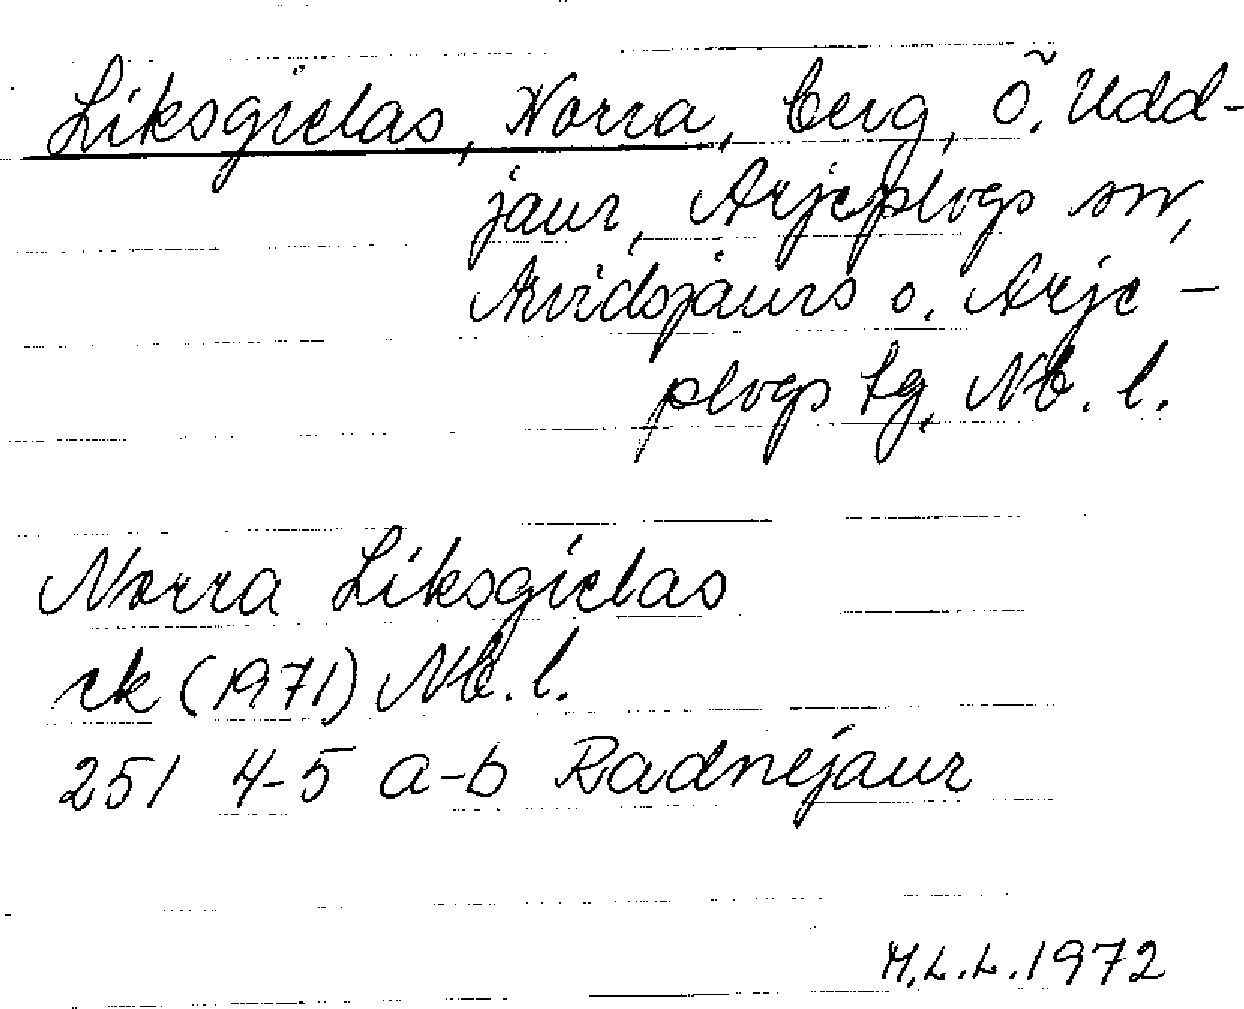 Liksgielas, Norra, berg, Ö. Udd-
jaur, Arjeplogs sn,
Arvidsjaurs o. Arje-
plogs tg, Nb. l.
Norra Liksgielas
rk (1971) Nb. l.
251 4-5 a-b Radnejaur
M.L.L. 1972